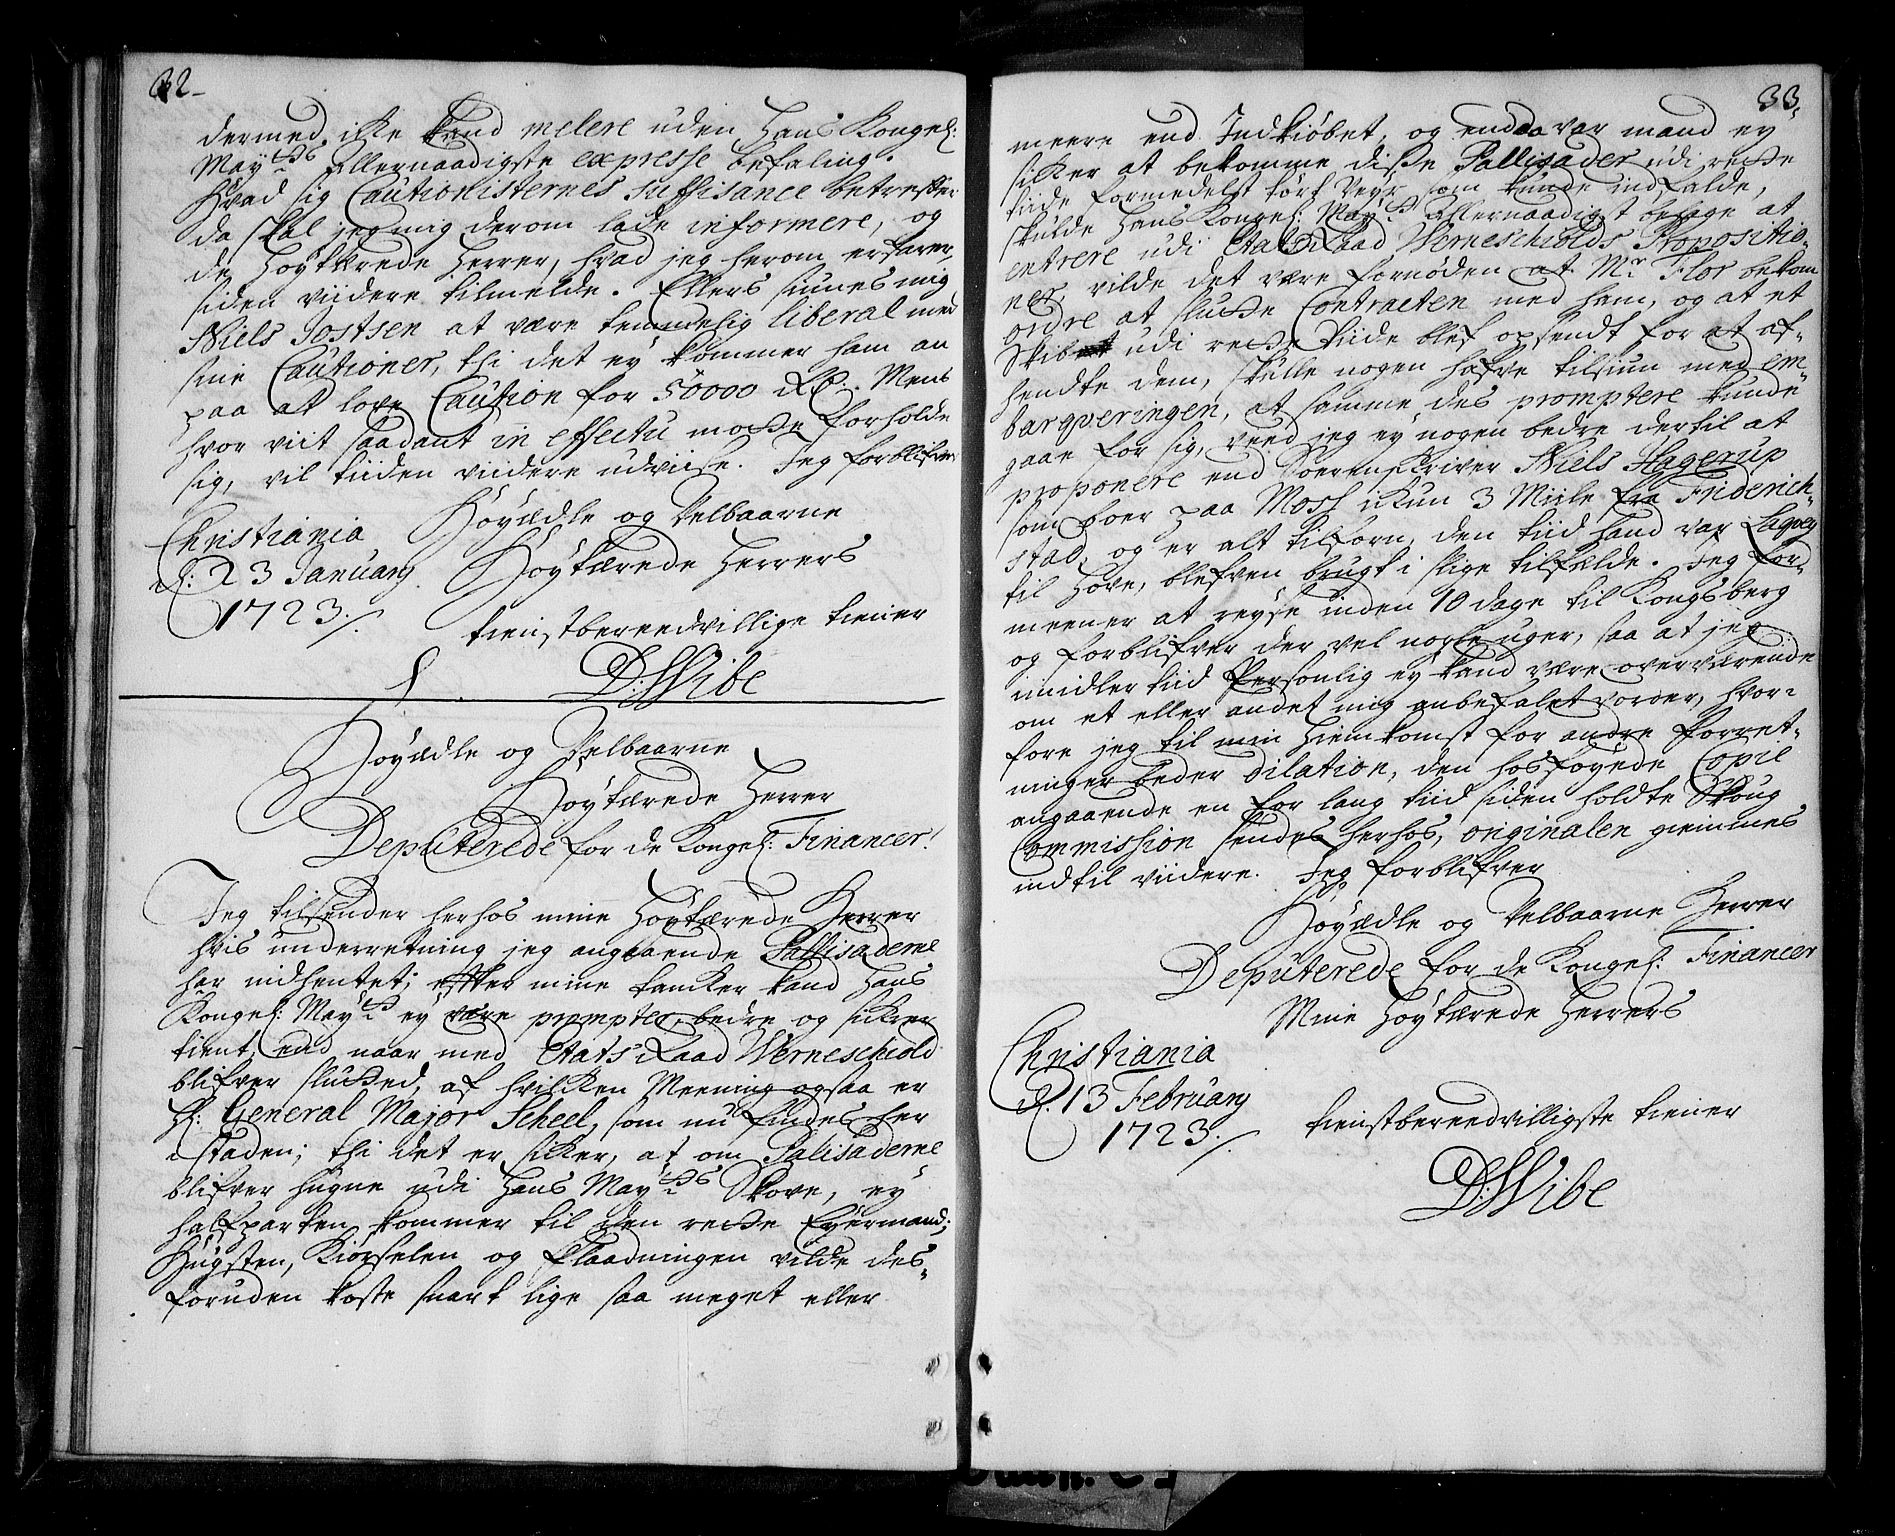 32
dermed icke kand melere uden Hans Kongel:
Mayts Allernaadigste expresse befaling.
Hvad sig Cautionisternes suffisance betreffer
da skal jeg mig derom lade informere, og
de Høytærede Herrer, hvad jeg herom erfarer,
siden viidere tilmelde. Ellers siunes mig
Niels Jostsen at være temmelig liberal med
sine Cautioner, thi det ey kommer ham an
paa at love Caution for 50000 Rd. Mens
hvor viit saadant in effectu motte forholde
sig, vil tiiden viidere udviise. Jeg forblifver
Høyædle og Velbaarne
Christiania
Høytærede Herrers
d: 23 January
1723./.
tienstbereedvillige tiener
D: Wibe
Høyædle og Velbaarne
Høytærede Herrer
Deputerede for de Kongel: Financer!
Jeg tilsender herhos mine Høytærede Herrer
hvis underretning jeg angaaende Pallisaderne
har indhentet; efter mine tancker kand Hans
Kongel: Mayt ey være prompter, bedre og sikrer
tient, end naar med Etats Raad Werneschiold
blifver slutted, af hvilcken Meening ogsaa er
H: General Major Scheel, som nu findes her
i staden; thi det er sikker, at om Palisaderne
blifver hugne udi Hans Mayts Skove, ey
halfparten kommer til den rette Eyermand;
Hugsten, Kiørselen og Flaadningen vilde des-
foruden koste snart lige saa meget eller
33.
meere end Indkiøbet, og endda var mand ey
sikker at bekomme disse Pallisader udi rette
tiide formedelst tørf Veyr som kunde indfalde,
skulde Hans Kongel: Mayt allernaadigst behage at
entrere udi Etats Raad Werneschiolds Propositio-
ner, vilde det være fornøden at Mr Flor bekom
ordre at slutte Contracten med ham, og at et
Skib udi rette tiide blef opsendt for at af-
hendte dem, skulle nogen hafve tilsiun med em-
barqveringen, at samme des promptere kunde
gaae for sig, veed jeg ey nogen bedre dertil at
proponere end Soerenskriver Niels Hagerup
som boer paa Moss ickun 3 Miile fra Friderich-
stad, og er alt tilforn, den tiid hand var Laqvey
til Hove, blefven brugt i slige tilfælde. Jeg for-
meener at reyse inden 10 dage til Kongsberg
og forblifver der vel nogle uger, saa at jeg
imidlertiid Personlig ey kand være overværende
om et eller andet mig anbefalet vorder, hvor-
fore jeg til min Hiemkomst for andre forret-
ninger beder dilation, den hosføyede Copie
angaaende en for lang tiid siden holdte Skoug
Commission sendes herhos, originalen giemmes
indtil viidere. Jeg forblifver
Høyædle og Velbaarne Herrer
Deputerede for de Kongel: Financer
Mine Høytærede Herrers
Christiania
d. 13 February
1723./.
tienstbereedvilligste tiener
D: Wibe